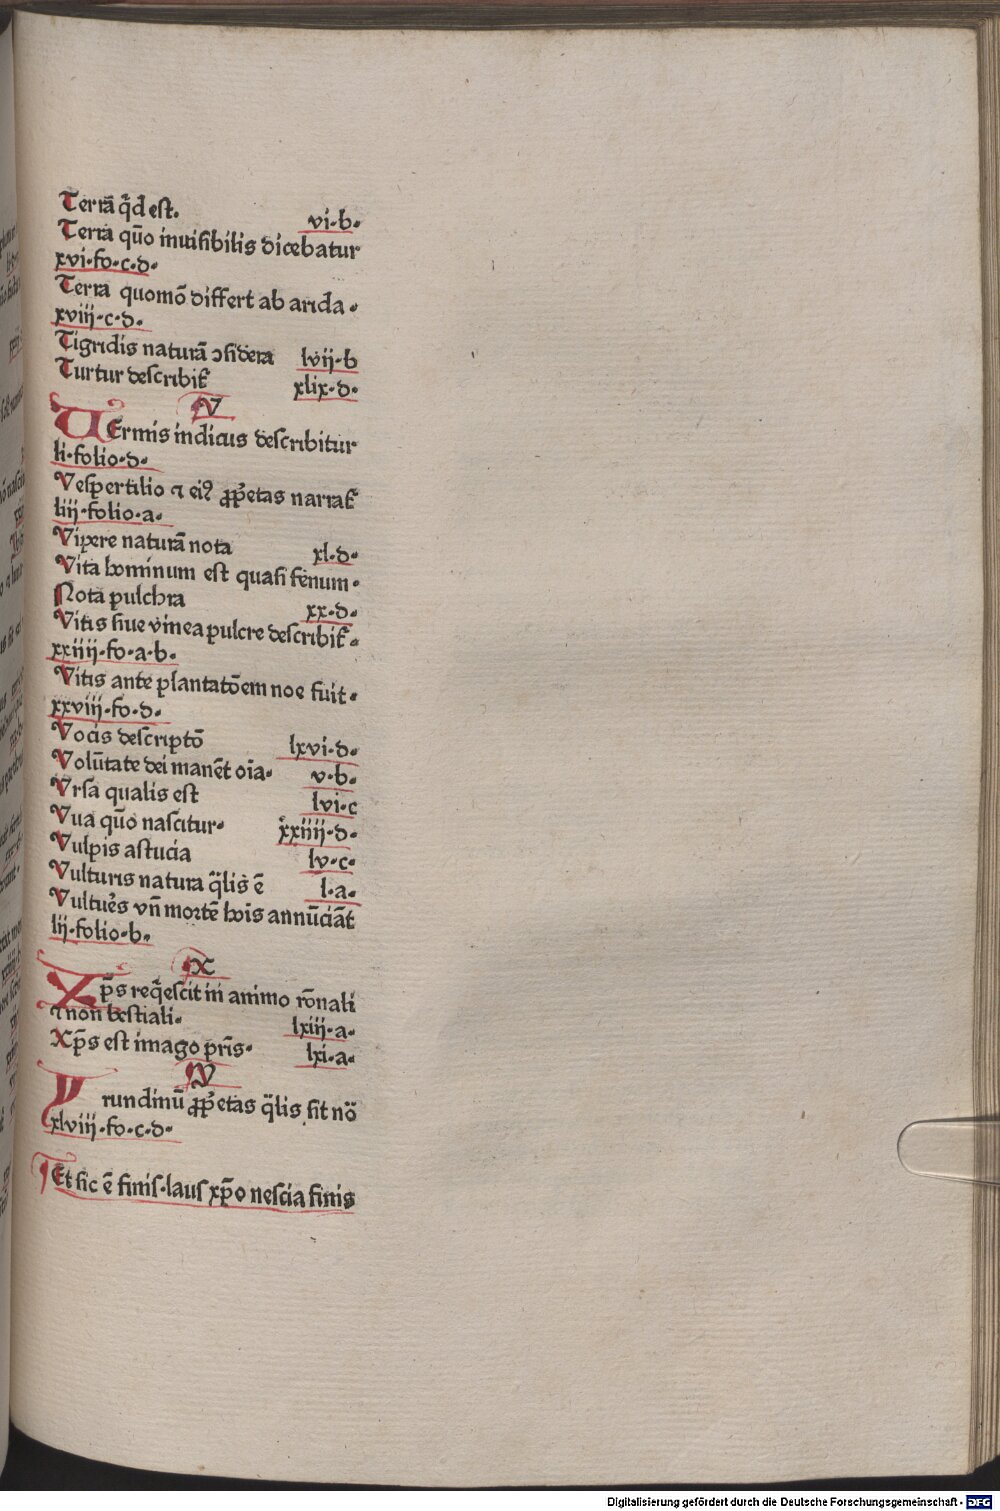 Terrā q̄d est. vi·b·
Terra quō inuisibilis dicebatur
xvi·fo·c·d·
Terra quomō differt ab arida·
xviij·c·d·
Tigridis naturā ↄsidera lvij·b
Turtur describit᷑ xlix·d·
V
VErmis indicus describitur
li·folio·d·
Vespertilio ⁊ eiꝰ ꝓp̄etas narrat᷑
liij·folio·a·
Vipere naturā nota xl·d·
Vita hominum est quasi fenum·
Nota pulchra xx·d·
Vitis siue vinea pulcre describit᷑·
xxiiij·fo·a·b·
Vitis ante plantatōem noe fuit·
xxviij·fo·d·
Vocis descriptō lxvi·d·
Volūtate dei manēt oīa· v·b·
Vrsa qualis est lvi·c
Vua quō nascitur· xxiiij·d·
Vulpis astucia lv·c·
Vulturis natura q̄lis ē l·a·
Vultures vn̄ mortē hoīs annūciāt
lij·folio·b·
X
Xp̄s req̄escit in animo rōnali
⁊ non bestiali· lxiij·a·
Xp̄s est imago pris̄· lxi·a·
Y
Yrundinū ꝓp̄etas q̄lis sit nō
xlviij·fo·c·d·
Et sic ē finis·laus xp̄o nescia finis
Digitalisierung gefördert durch die Deutsche Forschungsgemeinschaft - DFG